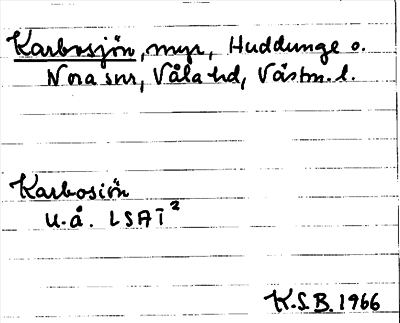 Karbosjön, myr, Huddunge o.
Nora snr, Våla hd, Västm. l.
Karbosiön
u.å. LSA I²
K.S.B. 1966